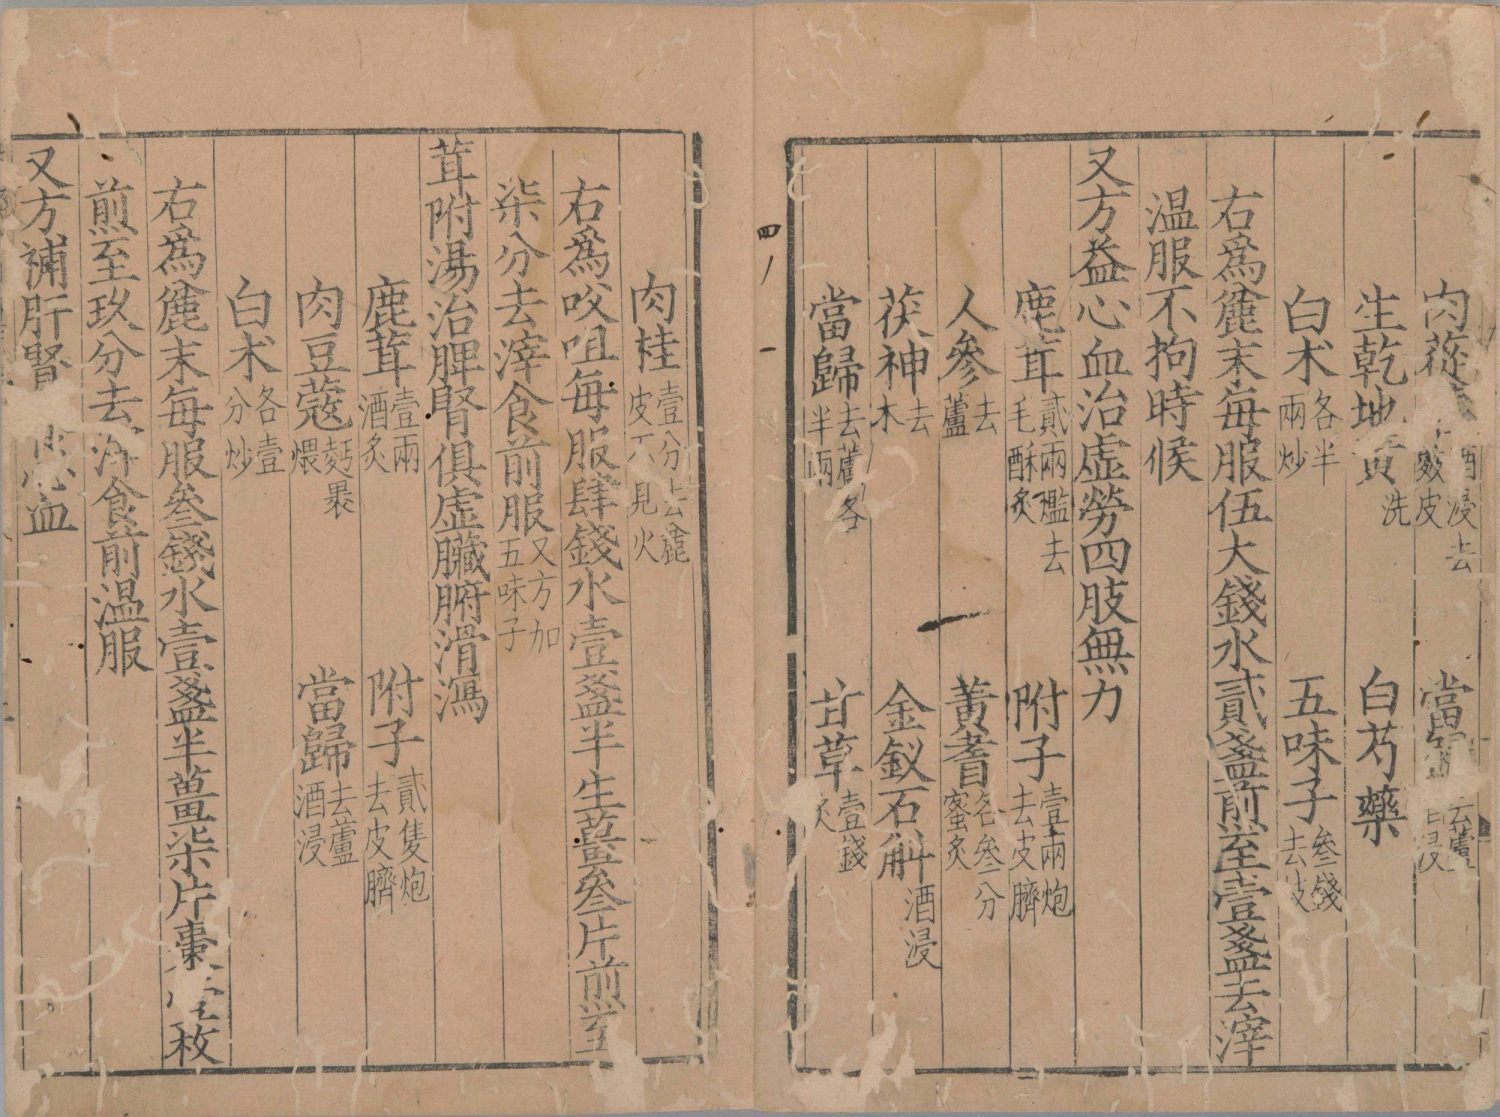 肉蓯 酒浸去皴皮 當歸 去蘆酒浸
生乾地黃 洗 白芍藥
白朮 各半兩炒 五味子 叁錢去枝
右爲麄末每服伍大錢水貳盞煎至壹盞去滓
溫服不拘時候
又方益心血治虛勞四肢無力
鹿茸 貳兩爁去毛酥炙 附子 壹兩炮去皮臍
人參 去蘆 黃耆 各叁分蜜炙
茯神 去木 金釵石斛 酒浸
當歸 去蘆各半兩 甘草 壹錢炙
四 一
肉桂 壹分去麄皮不見火
右爲㕮咀每服肆錢水壹盞半生薑叁片煎至
柒分去滓食前服 又方加五味子
茸附湯治脾腎俱虛臟腑滑瀉
鹿茸 壹兩酒炙 附子 貳隻炮去皮臍
肉豆蔻 麪裹煨 當歸 去蘆酒浸
白朮 各壹分炒
右爲麄末每服叁錢水壹盞半薑柒片棗壹枚
煎至玖分去滓食前溫服
又方補肝腎 心血